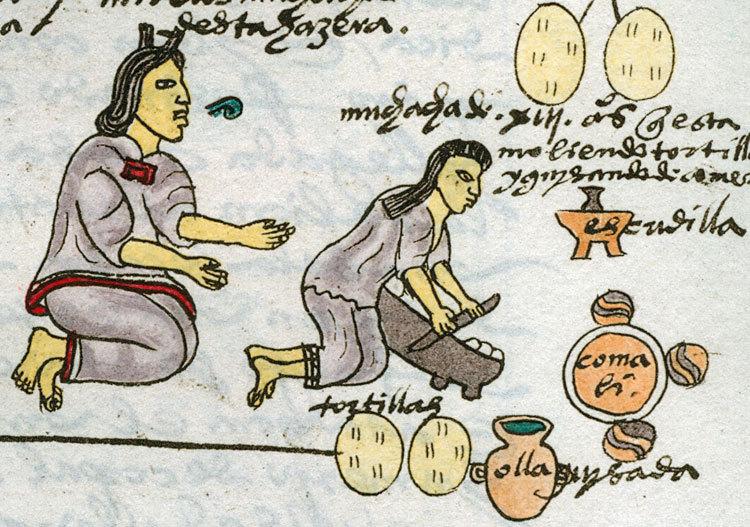 desta hazera.
muchacha de .xiij. aºs q̃ esta
moliendo tortill
y guysando de comer
escudilla
coma
li.
tortillas
olla guysada